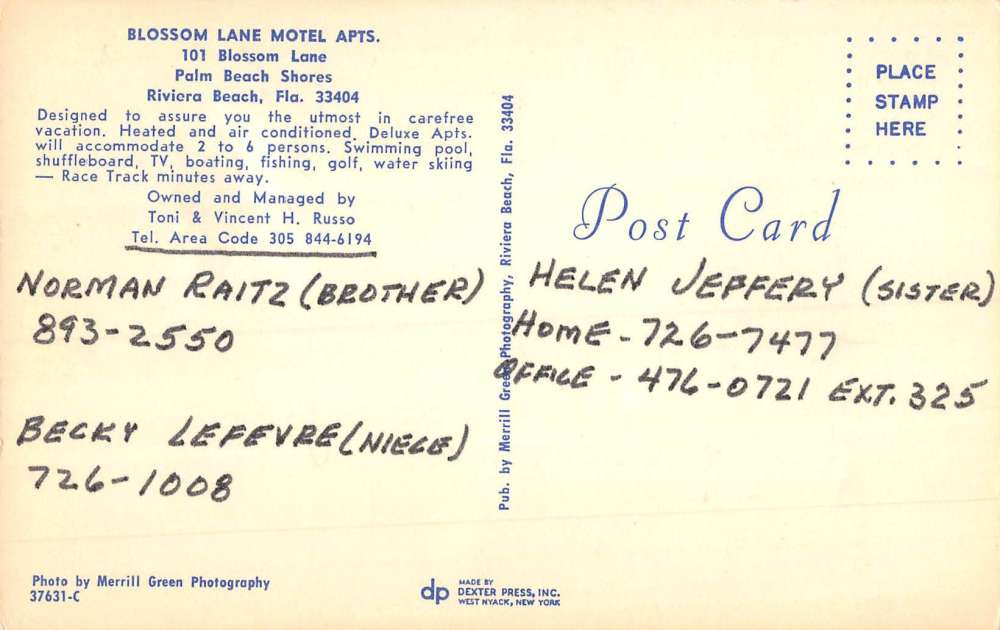 BLOSSOM LANE MOTEL APTS.
101 Blossom Lane
Palm Beach Shores
Riviera Beach, Fla. 33404
Designed to assure you the utmost in carefree
vacation. Heated and air conditioned. Deluxe Apts.
will accommodate 2 to 6 persons. Swimming pool,
shuffleboard, TV, boating, fishing, golf, water skiing
— Race Track minutes away.
Owned and Managed by
Toni & Vincent H. Russo
Tel. Area Code 305 844-6194
NORMAN RAITZ (BROTHER)
893-2550
BECKY LEFEVRE (NIECE)
726-1008
Photo by Merrill Green Photography
37631-C
Pub. by Merrill Green Photography, Riviera Beach, Fla. 33404
dp
MADE BY
DEXTER PRESS, INC.
WEST NYACK, NEW YORK
PLACE
STAMP
HERE
Post Card
HELEN JEFFERY (SISTER)
HOME - 726-7477
OFFICE - 476-0721 EXT. 325